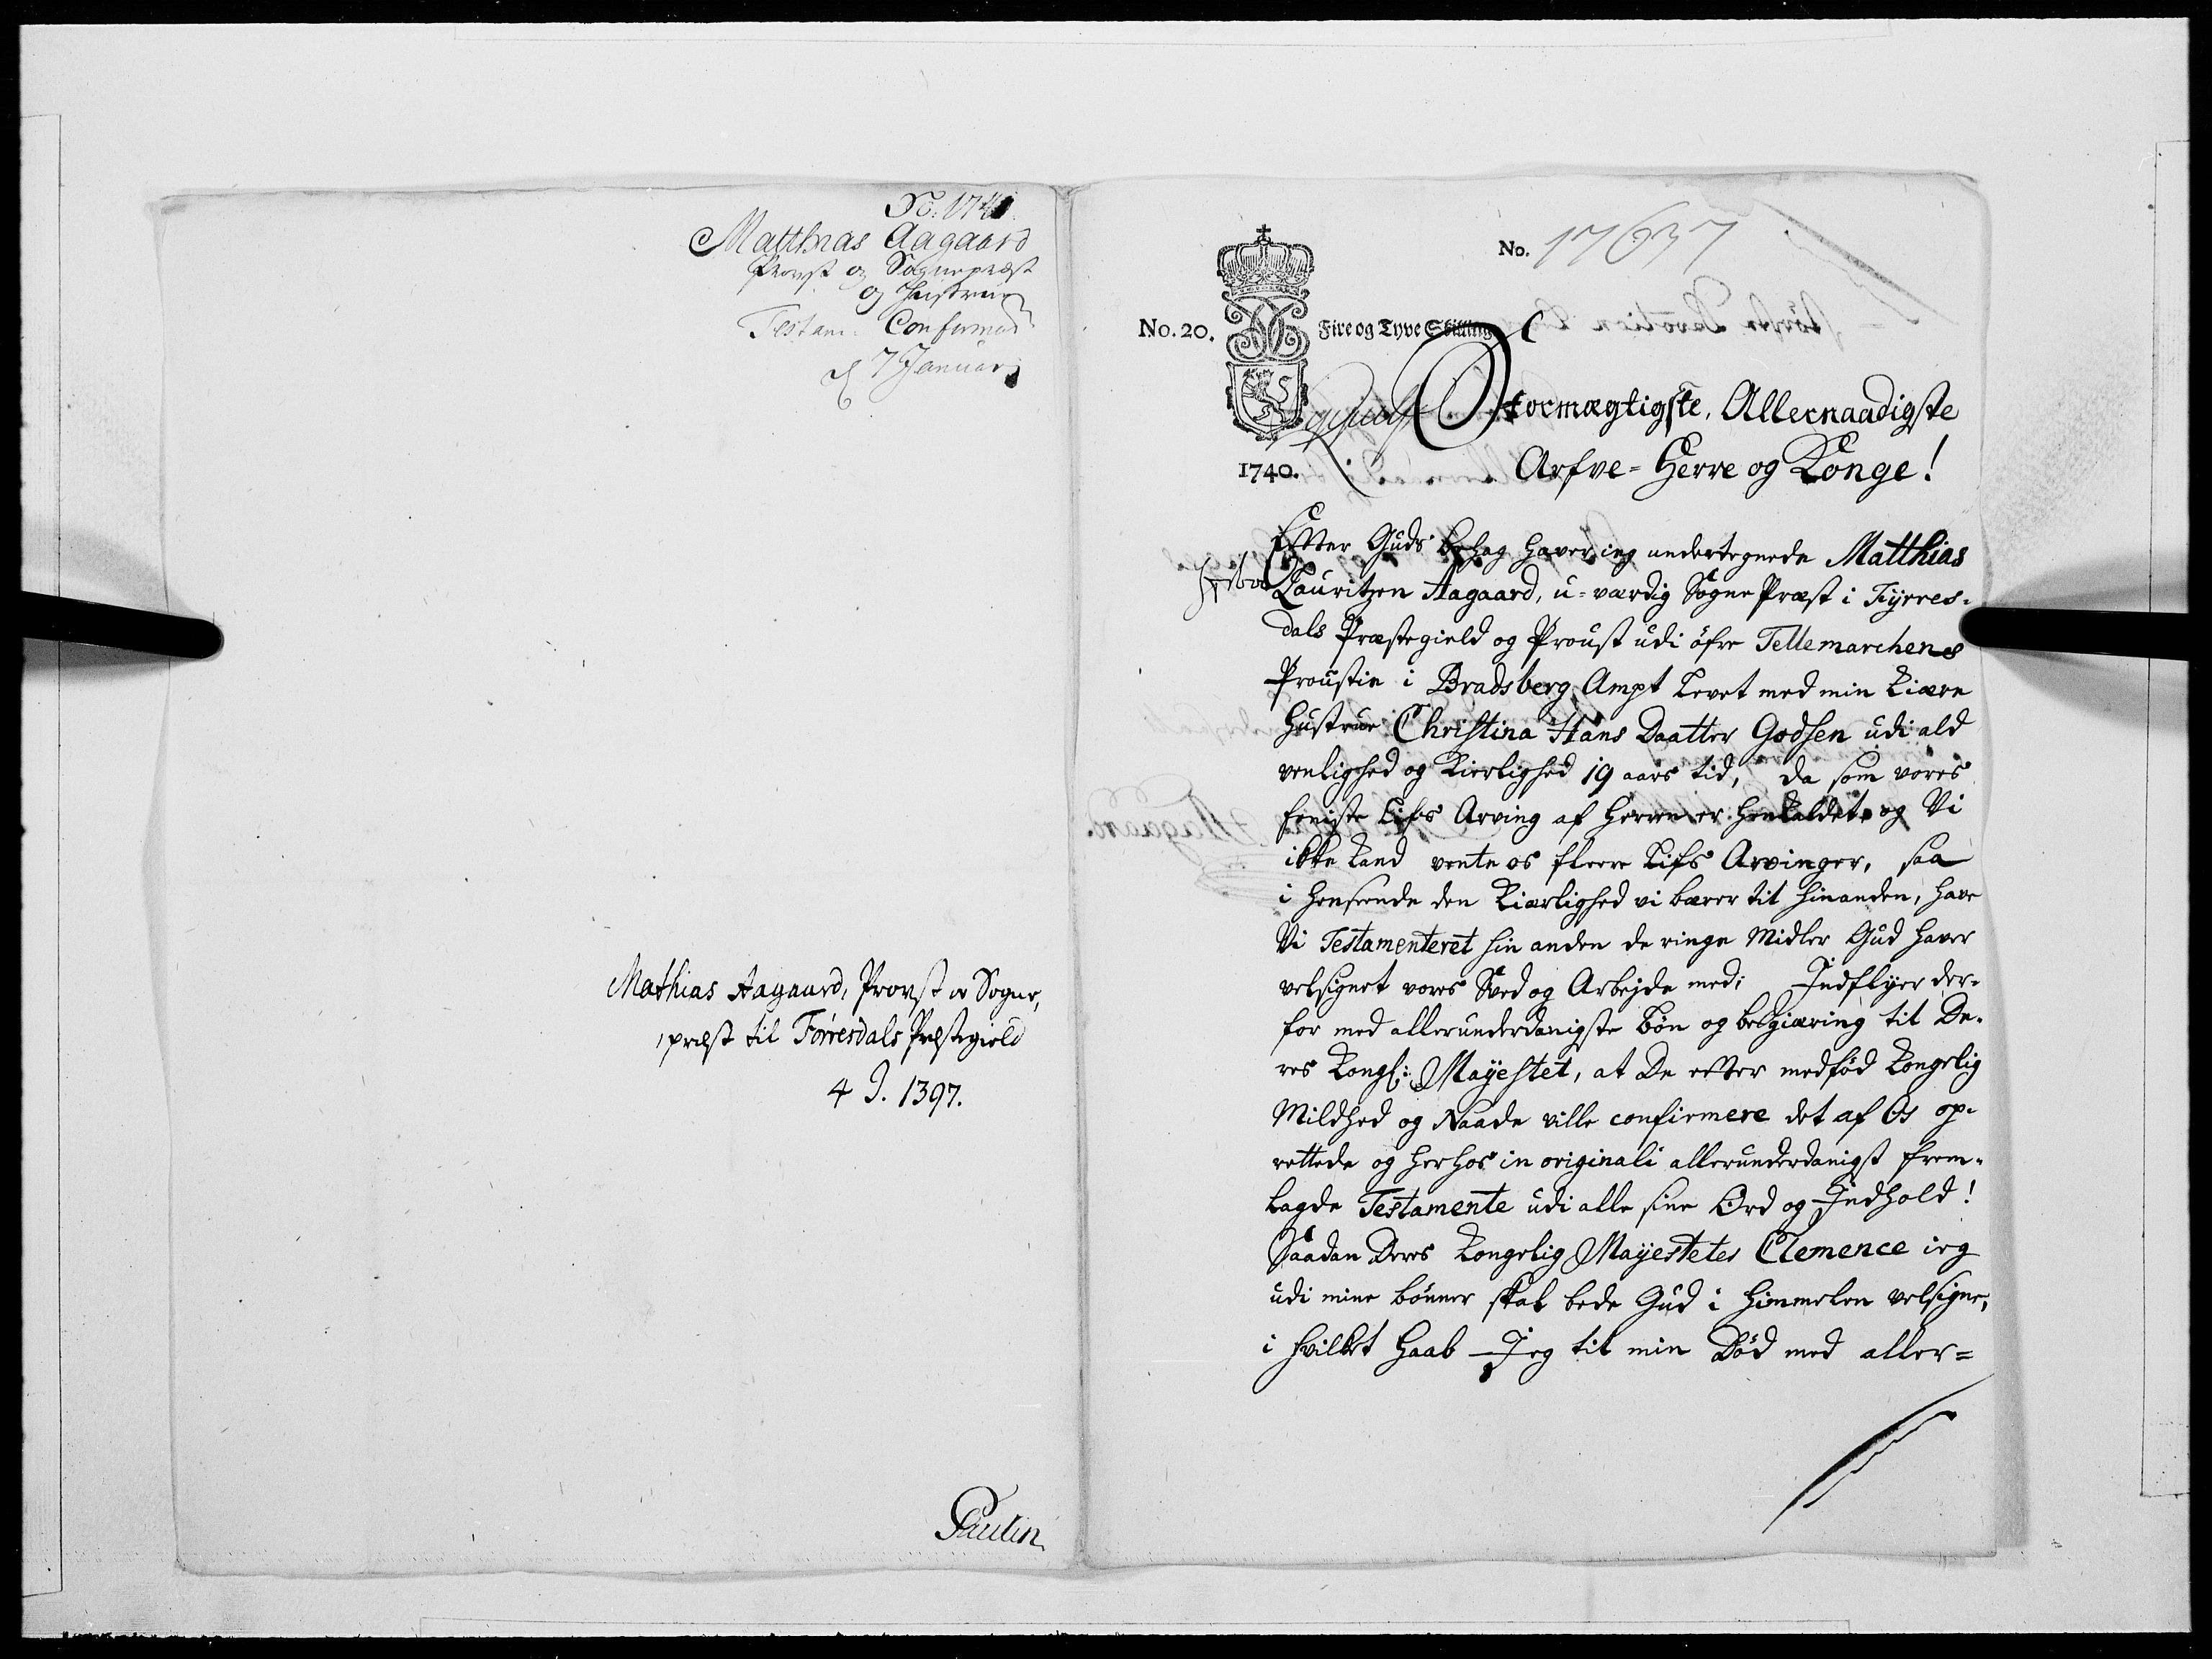 No: 1741.
Matthias Aagaard
Provst og Sognepræst
og Hustrue
Testam: Confirmed
7 Januar
Mathias Aagaard, Provst og Sogne,
præst til Förresdals Præstegield
4 J. 1397.
Paulin
No. 17637
No. 20.
Fire og Tyve Skilling
1740.
Stormægtigste, Allernaadigste
Arfve-Herre og Konge!
Efter Guds behag haver ieg undertegnede Matthias
Lauritzen Aagaard, u-værdig Sogne Præst i Fyrres-
dals Præstegield og Proust udi öfre Tellemarchens
Proustie i Bradsberg Ampt Levet med min Kiære
Hustrue Christina Hans Daatter Godsen udi ald
venlighed og Kierlighed 19 aars tid, da som vores
Eeniste Lifs Arving af Herren er henkaldet og Vi
ikke Kand vente os fleere Lifs Arvinger, saa
i henseende den Kiærlighed vi bærer til hinanden, have
Vi Testamenteret hin anden de ringe Midler Gud haver
velsignet vores Sved og Arbejde med; Indflyer der-
for med allerunderdanigste bön og begiæring til De-
res Kongl: Mayestet, at De efter medfød Kongelig
Mildhed og Naade ville confirmere det af Os op-
rettede og herhos in originali allerunderdanigst frem-
lagde Testamente udi alle sine Ord og Indhold!
Saadan Deres Kongelig Mayestetes Clemence ieg
udi mine bönner skal bede Gud i Himmelen velsigne,
i hvilket Haab Jeg til min Död med aller=